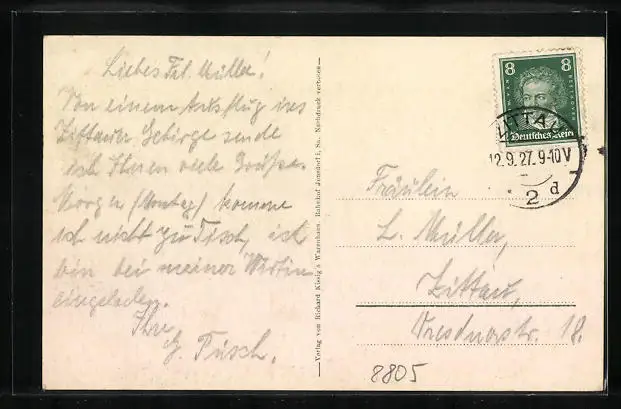 Liebes Frl. Müller!
Von einem Ausflug ins
Zittauer Gebirge sende
ich Ihnen viele Grüße.
Morgen (Montag) komme
ich nicht zu Tisch, ich
bin bei meiner Wirtin
eingeladen.
Ihre
G. Tusch.
Verlag von Richard Kissig's Warenhaus, Bahnhof Jonsdorf i. Sa. Nachdruck verboten
8 8
Deutsches Reich
ZITTAU
12.9.27.9-10V
* 2 d
Fräulein
L. Müller,
Zittau,
Dresdnerstr. 18.
8805